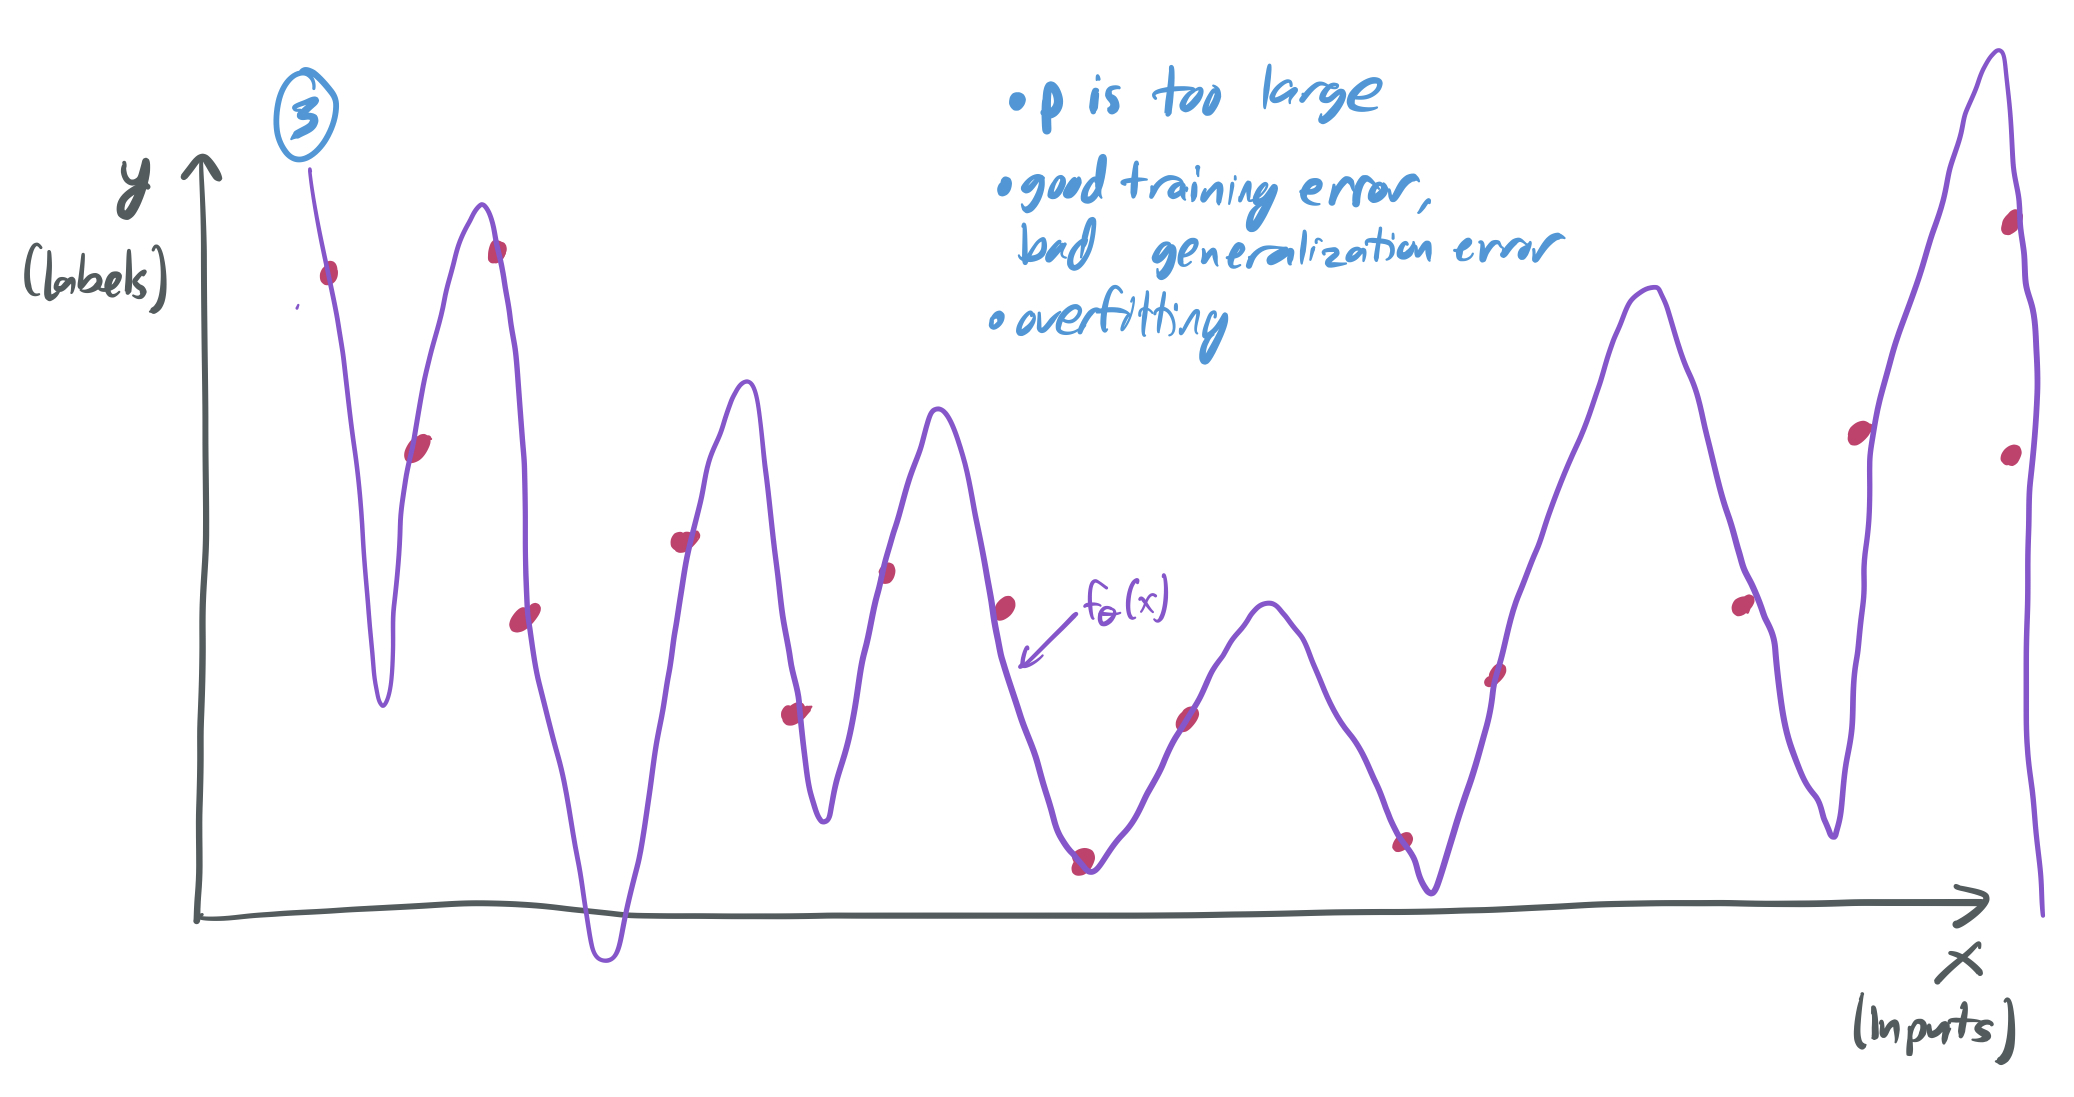 ③
• p is too large
• good training error,
bad generalization error
• overfitting
y
(labels)
fθ(x)
x
(inputs)